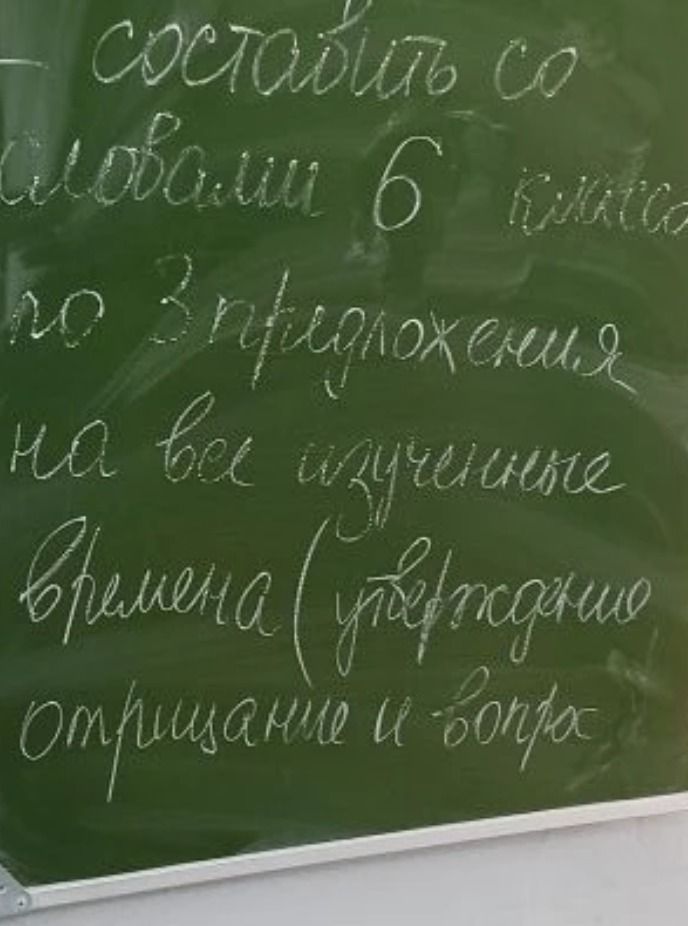 - составить со
словами 6 класса
по 3 предложения
на все изученные
времена (утверждение
отрицание и вопрос